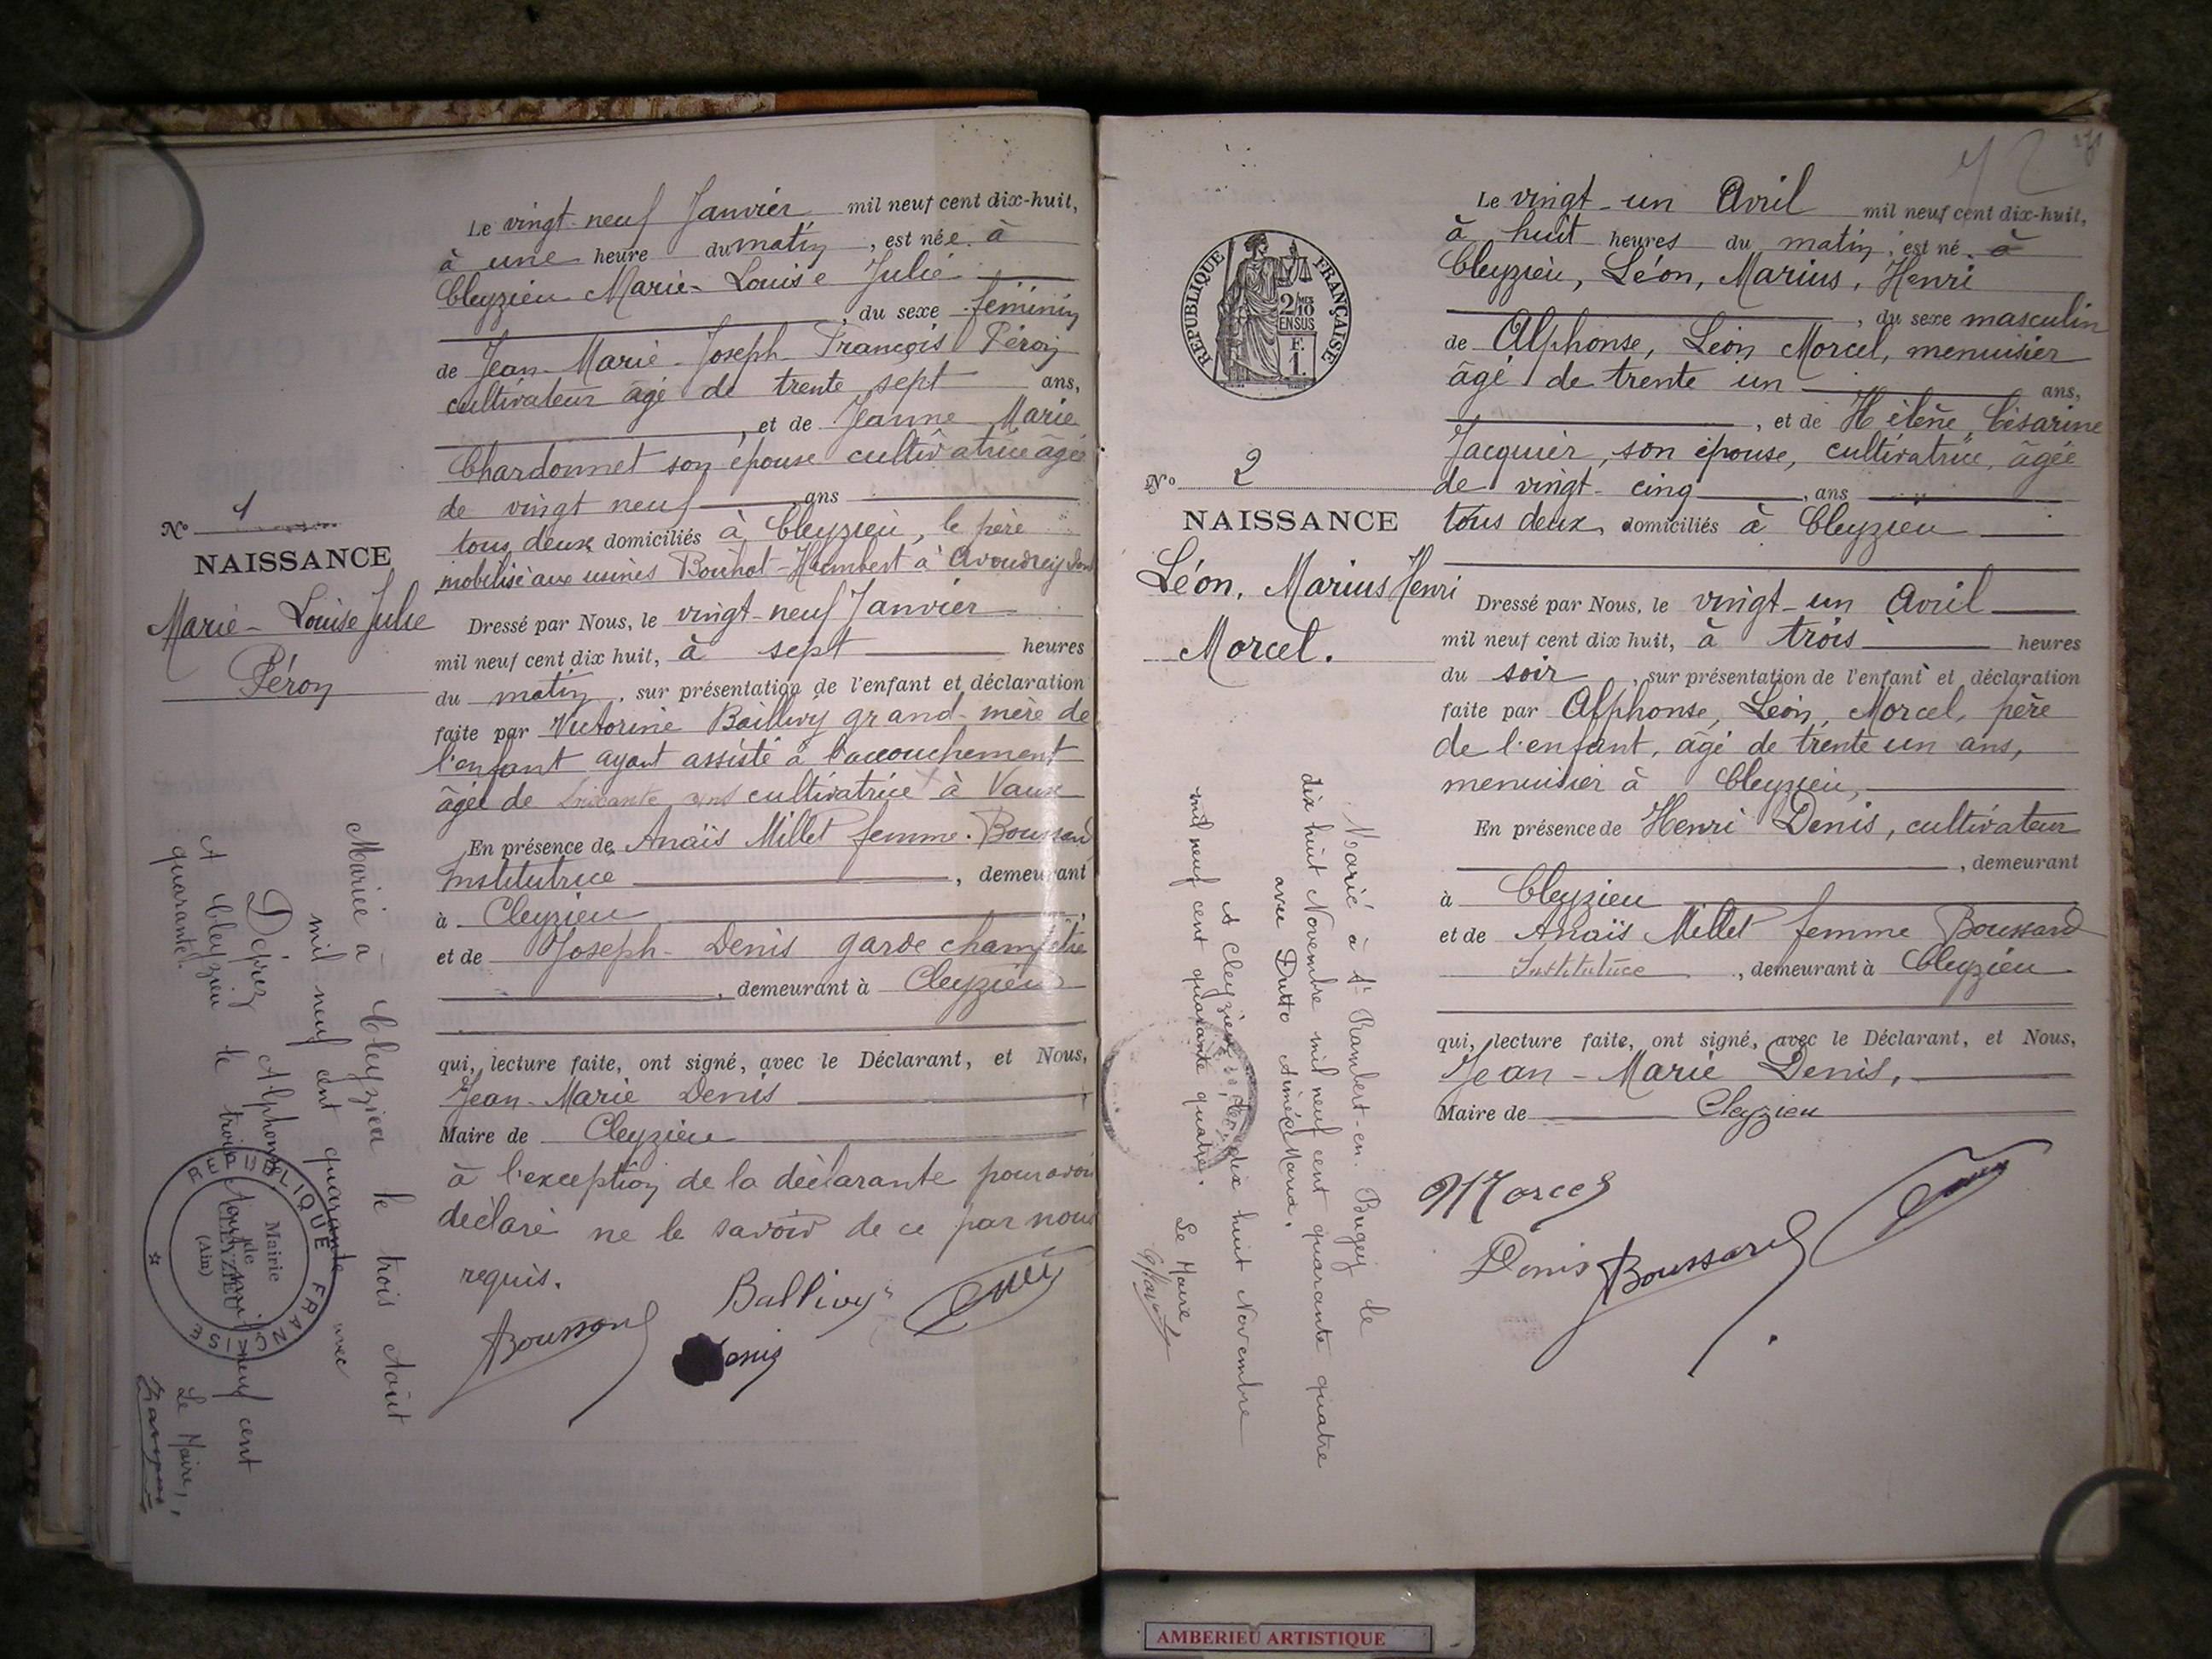 Le vingt-neuf Janvier mil neuf cent dix-huit,
à une heure du matin, est née à
Cleyzieu Marie-Louise Julie
, du sexe féminin
de Jean-Marie-Joseph-François Péron
cultivateur âgé de trente sept ans,
, et de Jeanne Marie
Chardonnet son épouse cultivatrice âgée
de vingt neuf, ans
tous deux domiciliés à Cleyzieu, le père
mobilisé aux usines à Avoudrey
Nº 1
NAISSANCE
Marie-Louise Julie
Péron
Dressé par Nous, le vingt-neuf Janvier
mil neuf cent dix huit, à sept heures
du matin, sur présentation de l'enfant et déclaration
faite par Victorine grand-mère de
l'enfant ayant assisté à l'accouchement
âgée de soixante ans cultivatrice à Vaux
En présence de Anaïs Millet femme Boussard
Institutrice, demeurant
à Cleyzieu,
et de Joseph-Denis garde champêtre
, demeurant à Cleyzieu
qui, lecture faite, ont signé, avec le Déclarant, et Nous,
Jean-Marie Denis
Maire de Cleyzieu
à l'exception de la déclarante pour avoir
déclaré ne le savoir de ce par nous
requis.
Ballivy
Boussard
Denis
Mariée à Cleyzieu le trois Août
mil neuf cent quarante avec
Déprez Alphonse
A Cleyzieu le trois Août mil neuf cent
quarante.
Le Maire,
REPUBLIQUE FRANÇAISE
Mairie
de
CLEYZIEU
(Ain)
REPUBLIQUE FRANÇAISE
2/10 MES
EN SUS
F.
1.
Le vingt-un Avril mil neuf cent dix-huit,
à huit heures du matin, est né à
Cleyzieu, Léon, Marius, Henri
, du sexe masculin
de Alphonse, Léon Morcel, menuisier
âgé de trente un ans,
, et de Hélène, Césarine
Jacquier, son épouse, cultivatrice, âgée
de vingt-cinq, ans
tous deux domiciliés à Cleyzieu
Nº 2
NAISSANCE
Léon, Marius Henri
Morcel.
Dressé par Nous, le vingt-un Avril
mil neuf cent dix huit, à trois heures
du soir, sur présentation de l'enfant et déclaration
faite par Alphonse, Léon, Morcel, père
de l'enfant, âgé de trente un ans,
menuisier à Cleyzieu,
En présence de Henri Denis, cultivateur
, demeurant
à Cleyzieu
et de Anaïs Millet femme Boussard
Institutrice, demeurant à Cleyzieu
qui, lecture faite, ont signé, avec le Déclarant, et Nous,
Jean-Marie Denis,
Maire de Cleyzieu
Morcel
Denis Boussard
Marié à St Rambert-en-Bugey le
dix huit Novembre mil neuf cent quarante quatre
avec Dutto Aimée Maria.
A Cleyzieu, le dix huit Novembre
mil neuf cent quarante quatre.
Le Maire
AMBERIEU ARTISTIQUE